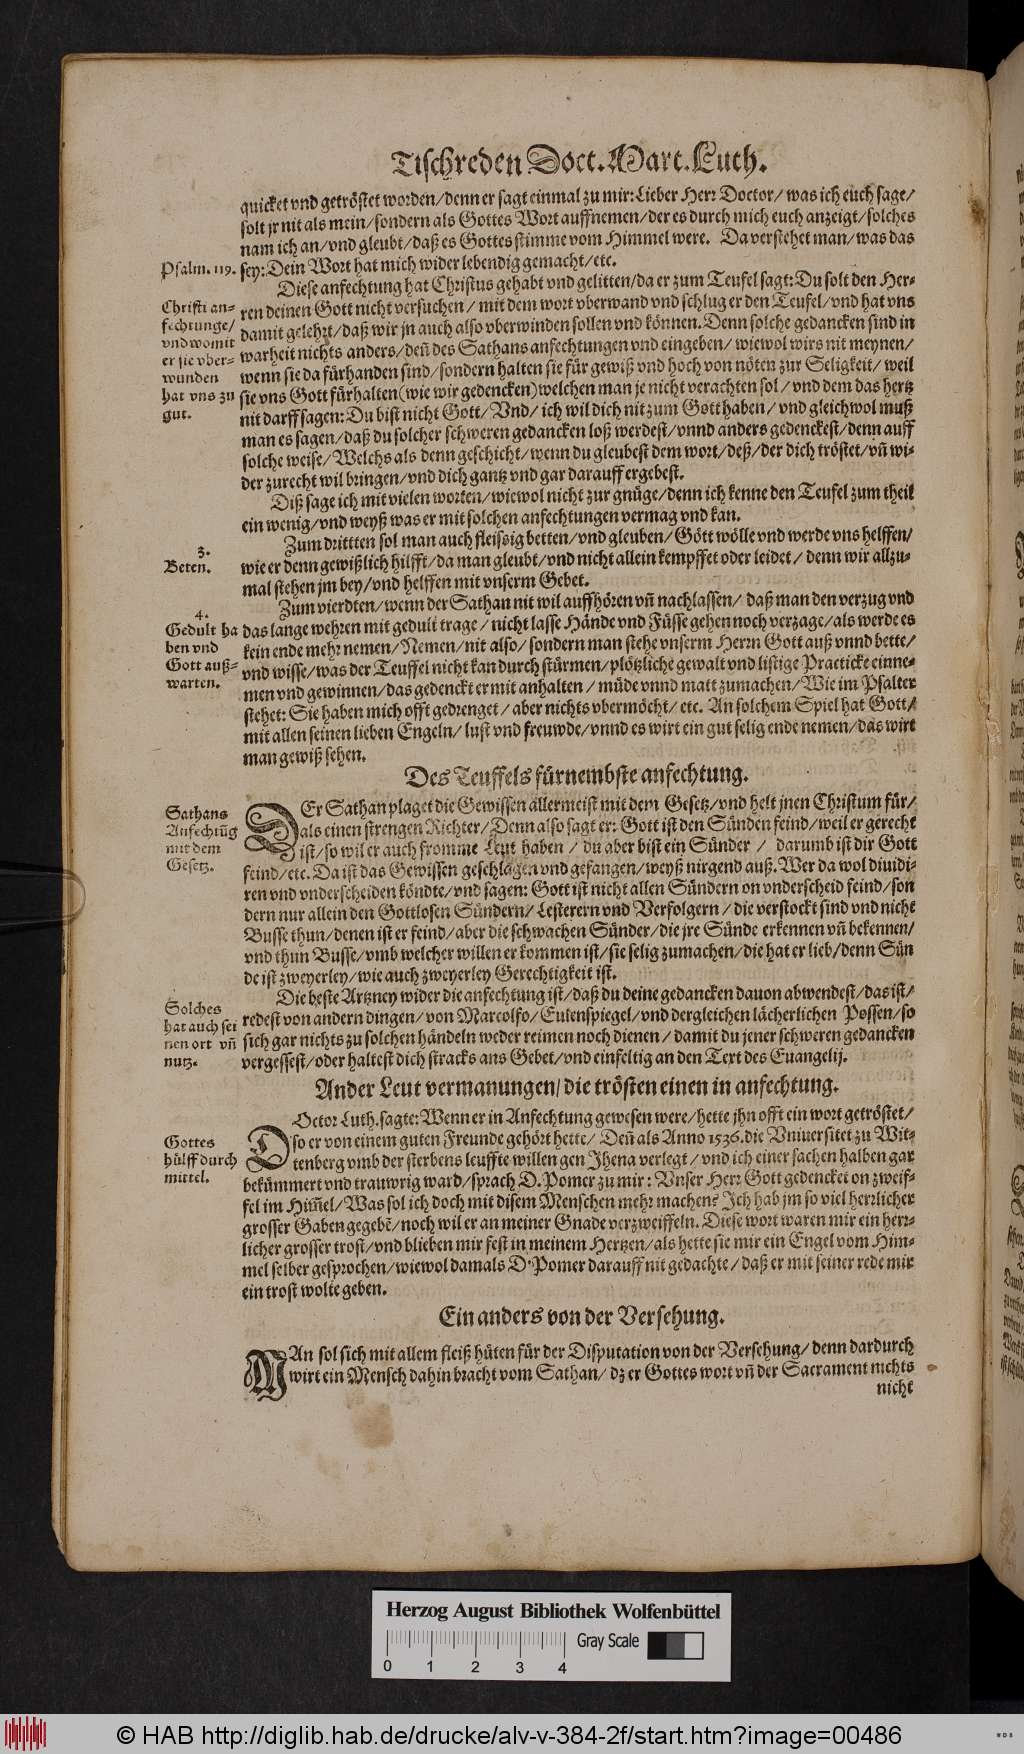 Tischreden Doct. Mart. Luth.
quicket vnd getröstet worden/denn er sagt einmal zu mir: Lieber Herr Doctor/ was ich euch sage/
solt jr nit als mein/sondern als Gottes Wort auffnemen/der es durch mich euch anzeigt/solches
nam ich an/vnd gleubt/daß es Gottes stimme vom Himmel were. Da verstehet man/was das
Psalm. 119.
sey: Dein Wort hat mich wider lebendig gemacht/etc.
Diese anfechtung hat Christus gehabt vnd gelitten/da er zum Teufel sagt: Du solt den Her-
Christi an-
fechtunge/
vnd womit
er sie vber-
wunden
hat vns zu
gut.
ren deinen Gott nicht versuchen/ mit dem wort vberwand vnd schlug er den Teufel/vnd hat vns
damit gelehrt/daß wir jn auch also vberwinden sollen vnd können. Denn solche gedancken sind in
warheit nichts anders/deñ des Sathans anfechtungen vnd eingeben/ wiewol wirs nit meynen/
wenn sie da fürhanden sind/sondern halten sie für gewiß vnd hoch von nöten zur Seligkeit/ weil
sie vns Gott fürhalten(wie wir gedencken)welchen man je nicht verachten sol/vnd dem das hertz
nit darff sagen: Du bist nicht Gott/ Vnd/ ich wil dich nit zum Gott haben/ vnd gleichwol muß
man es sagen/daß du solcher schweren gedancken loß werdest/vnnd anders gedenckest/denn auff
solche weise/Welchs als denn geschicht/wenn du gleubest dem wort/deß/der dich tröstet/vñ wi-
der zurecht wil bringen/vnd dich gantz vnd gar darauff ergebest.
Diß sage ich mit vielen worten/wiewol nicht zur gnüge/denn ich kenne den Teufel zum theil
ein wenig/vnd weyß was er mit solchen anfechtungen vermag vnd kan.
3.
Beten.
Zum drittten sol man auch fleissig betten/vnd gleuben/Gott wölle vnd werde vns helffen/
wie er denn gewißlich hilfft/da man gleubt/vnd nicht allein kempffet oder leidet/ denn wir allzu-
mal stehen jm bey/vnd helffen mit vnserm Gebet.
4.
Gedult ha
ben vnd
Gott auß-
warten.
Zum vierdten/wenn der Sathan nit wil auffhören vñ nachlassen/ daß man den verzug vnd
das lange wehren mit gedult trage/ nicht lasse Hände vnd Füsse gehen noch verzage/als werde es
kein ende mehr nemen/Nemen/nit also/ sondern man stehe vnserm Herrn Gott auß vnnd bette/
vnd wisse/was der Teuffel nicht kan durch stürmen/plötzliche gewalt vnd listige Practicke einne-
men vnd gewinnen/das gedenckt er mit anhalten/ müde vnnd matt zumachen/Wie im Psalter
stehet: Sie haben mich offt gedrenget/ aber nichts vbermöcht/ etc. An solchem Spiel hat Gott/
mit allen seinen lieben Engeln/ lust vnd freuwde/vnnd es wirt ein gut selig ende nemen/das wirt
man gewiß sehen.
Des Teuffels fürnembste anfechtung.
Sathans
Anfechtũg
mit dem
Gesetz.
DEr Sathan plaget die Gewissen allermeist mit dem Gesetz/vnd helt jnen Christum für/
als einen strengen Richter/Denn also sagt er: Gott ist den Sünden feind/weil er gerecht
ist/so wil er auch fromme Leut haben/ du aber bist ein Sünder/ darumb ist dir Gott
feind/etc. Da ist das Gewissen geschlagen vnd gefangen/weyß nirgend auß. Wer da wol diuidi-
ren vnd vnderscheiden köndte/vnd sagen: Gott ist nicht allen Sündern on vnderscheid feind/son
dern nur allein den Gottlosen Sündern/ Lesterern vnd Verfolgern/ die verstockt sind vnd nicht
Busse thun/denen ist er feind/aber die schwachen Sünder/die jre Sünde erkennen vñ bekennen/
vnd thun Busse/vmb welcher willen er kommen ist/sie selig zumachen/die hat er lieb/denn Sün
de ist zweyerley/wie auch zweyerley Gerechtigkeit ist.
Solches
hat auch sei
nen ort vñ
nutz.
Die beste Artzney wider die anfechtung ist/daß du deine gedancken dauon abwendest/das ist/
redest von andern dingen/von Marcolfo/Eulenspiegel/vnd dergleichen lächerlichen Possen/so
sich gar nichts zu solchen händeln weder reimen noch dienen/ damit du jener schweren gedancken
vergessest/oder haltest dich stracks ans Gebet/vnd einfeltig an den Text des Euangelij.
Ander Leut vermanungen/die trösten einen in anfechtung.
Gottes
hülff durch
mittel.
DOctor Luth. sagte: Wenn er in Anfechtung gewesen were/hette jhn offt ein wort getröstet/
so er von einem guten Freunde gehört hette/ Deñ als Anno 1536. die Vniuersitet zu Wit-
tenberg vmb der sterbens leuffte willen gen Jhena verlegt/ vnd ich einer sachen halben gar
bekümmert vnd trauwrig ward/sprach D. Pomer zu mir: Vnser Herr Gott gedencket on zweif-
fel im Him̃el/Was sol ich doch mit disem Menschen mehr machen? Ich hab jm so viel herrlicher
grosser Gaben gegebẽ/noch wil er an meiner Gnade verzweiffeln. Diese wort waren mir ein herr-
licher grosser trost/vnd blieben mir fest in meinem Hertzen/als hette sie mir ein Engel vom Him-
mel selber gesprochen/wiewol damals D. Pomer darauff nit gedachte/ daß er mit seiner rede mir
ein trost wolte geben.
Ein anders von der Versehung.
MAn sol sich mit allem fleiß hüten für der Disputation von der Versehung/ denn dardurch
wirt ein Mensch dahin bracht vom Sathan/ dz er Gottes wort vñ der Sacrament nichts
nicht
Herzog August Bibliothek Wolfenbüttel
Gray Scale
0 1 2 3 4
© HAB http://diglib.hab.de/drucke/alv-v-384-2f/start.htm?image=00486